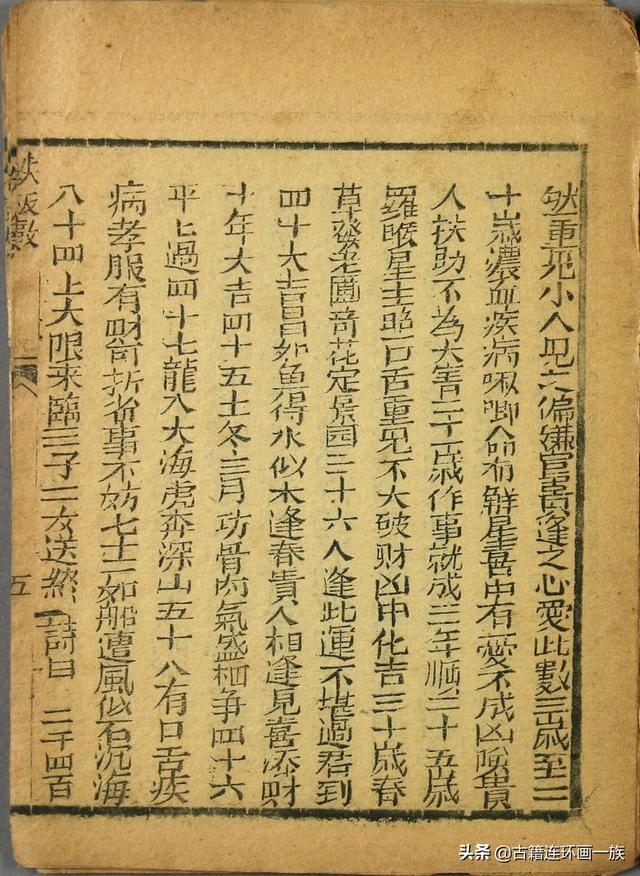 然重見小人見之偏嫌官貴逢之心愛此數三歲至二
十歲濃血疾病啾唧命有解星喜中有憂不成凶險貴
人扶助不為大害二十一歲作事就成三年順三十五歲
羅睺星主照口舌重見不大破財凶中化吉三十歲春
草發芽圃奇花定景园三十六人逢此運不堪過君到
四十大吉昌如魚得水似木逢春貴人相逢見喜添財
十年大吉四十五十冬三月功骨肉氣盛相争四十六
平上過四十七龍入大海虎奔深山五十八有口舌疾
病孝服有財可折省事不妨七十一如船遭風似石沉海
八十四上大限来臨三子二女送終 詩曰 二千四百
鉄板數
五
头条 @古籍连环画一族